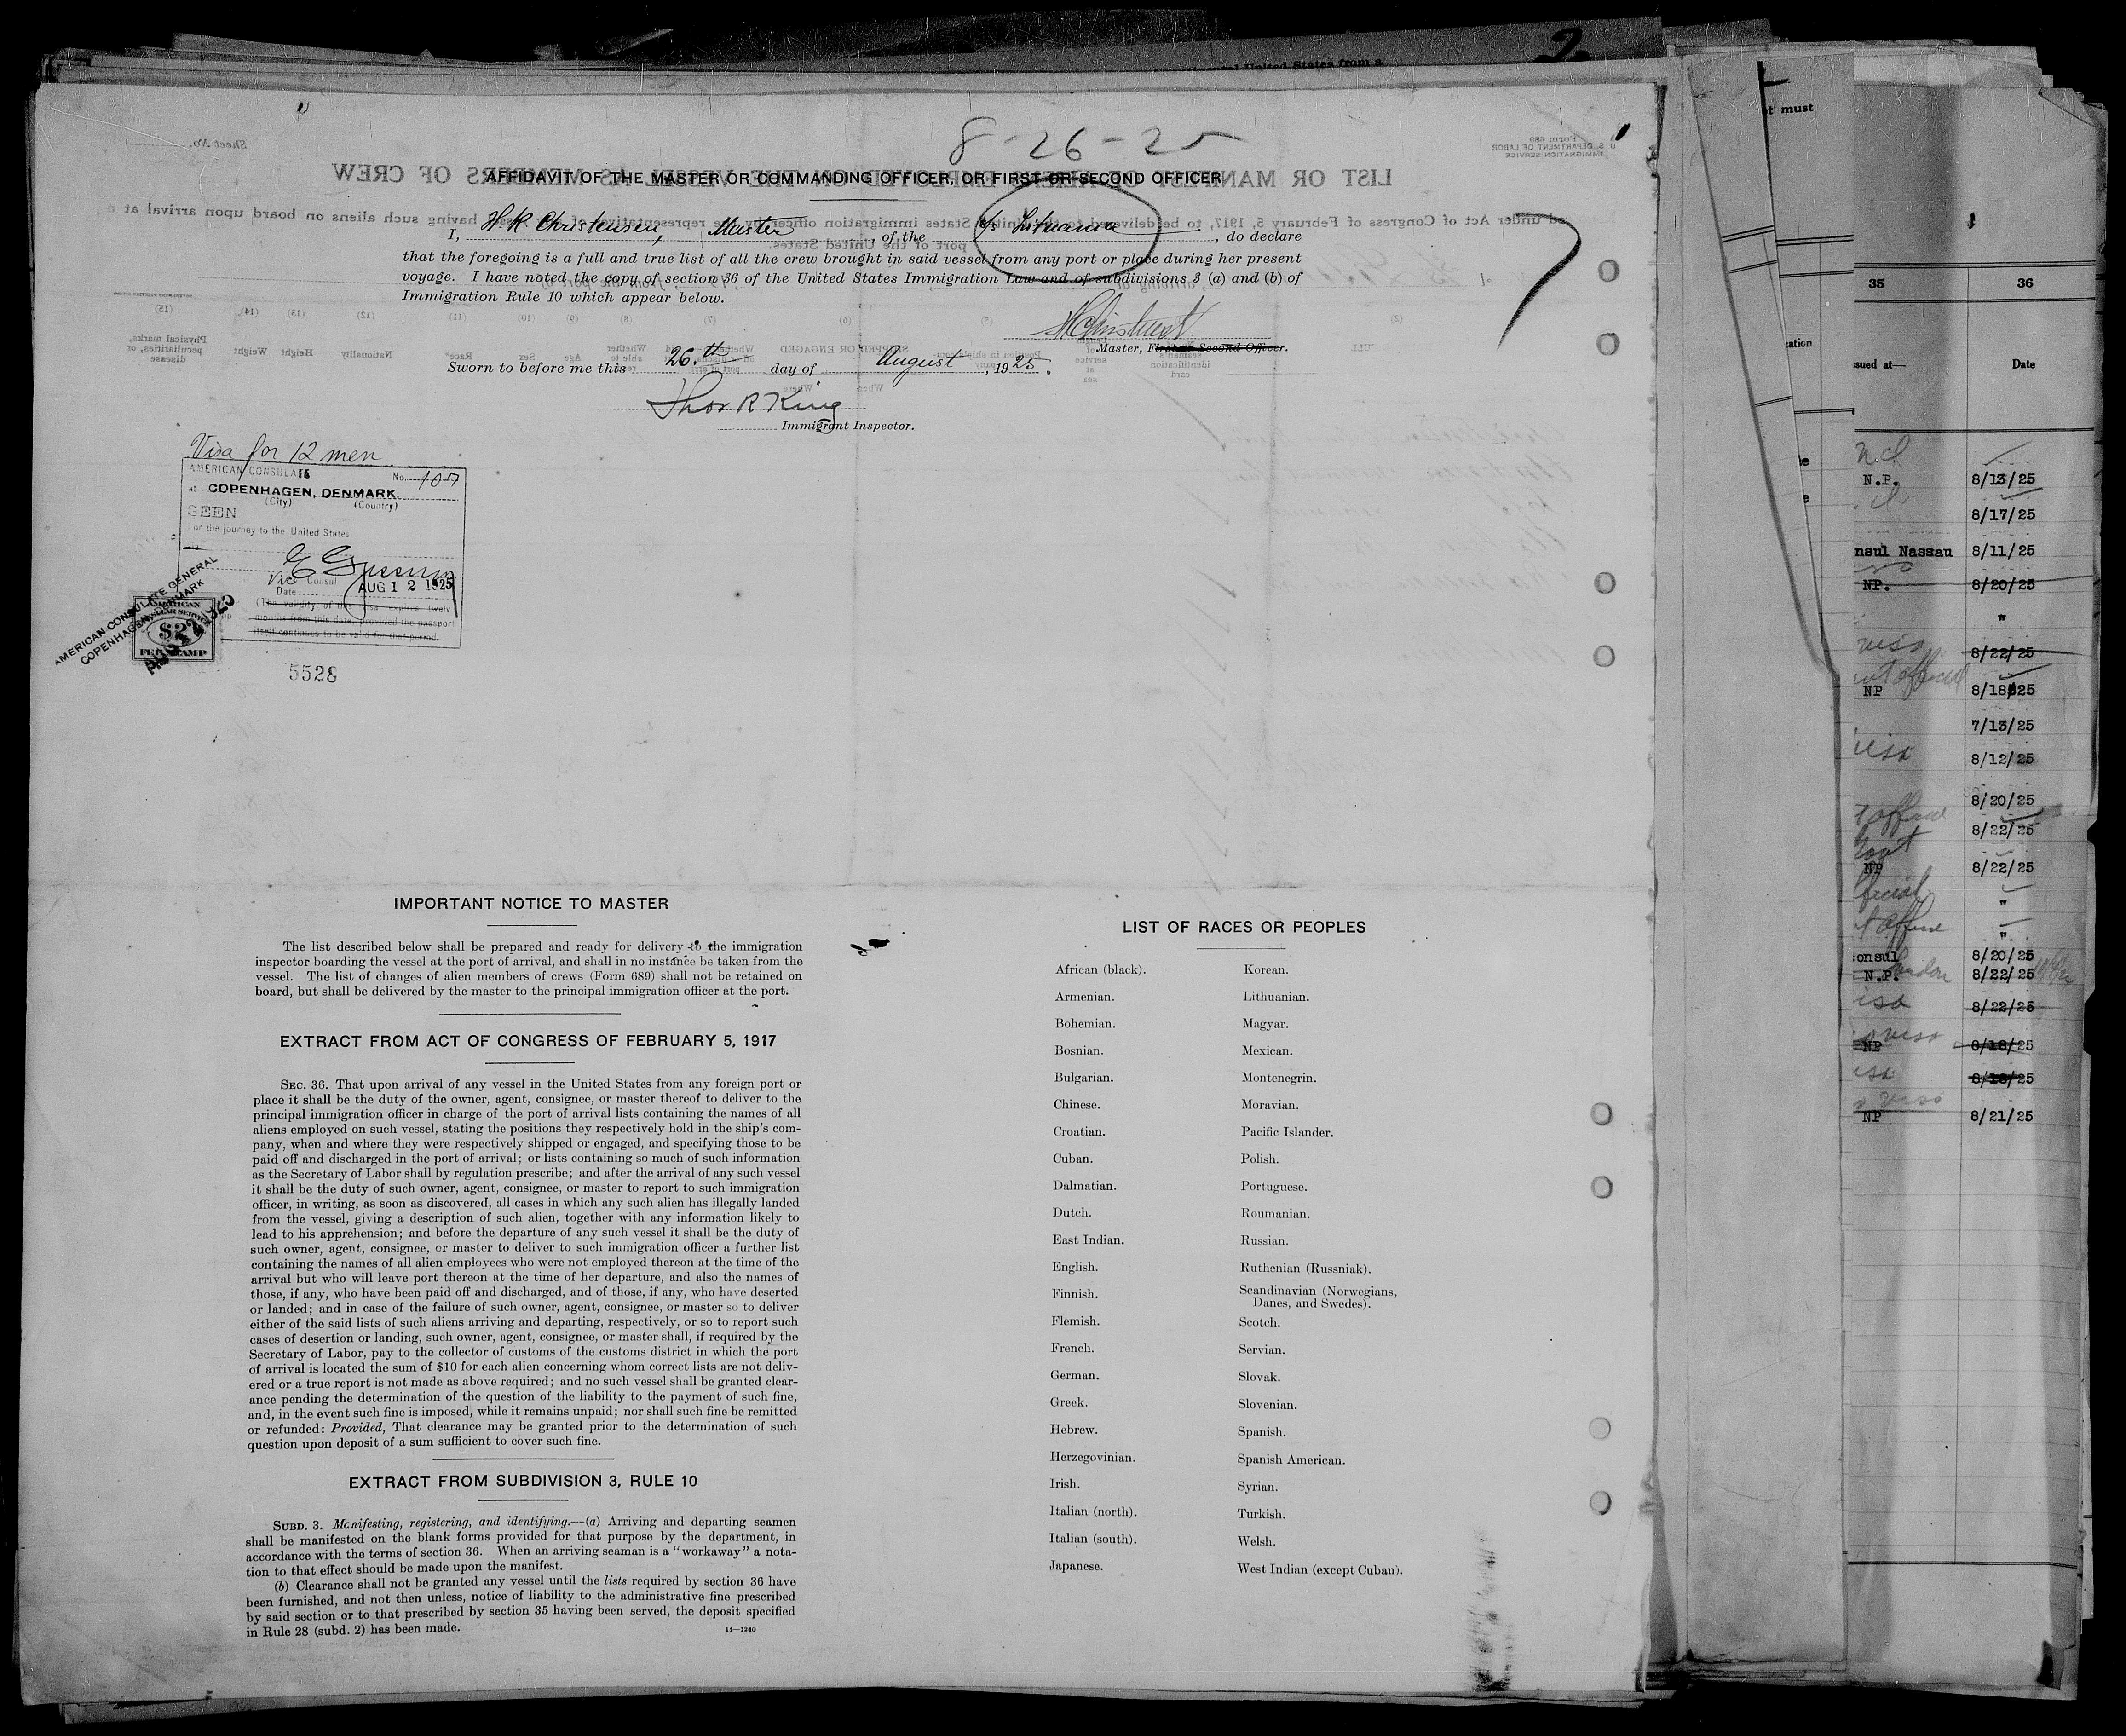 8-26-25
AFFIDAVIT OF THE MASTER OR COMMANDING OFFICER, OR FIRST OR SECOND OFFICER
I, H. K. Christensen, Master, of the S/S Lituania, do declare
that the foregoing is a full and true list of all the crew brought in said vessel from any port or place during her present
voyage. I have noted the copy of section 36 of the United States Immigration Law and of subdivisions 3 (a) and (b) of
Immigration Rule 10 which appear below.
Master, First or Second Officer.
Sworn to before me this 26.th day of August, 1925.
Thor R King
Immigrant Inspector.
Visa for 12 men
AMERICAN CONSULATE No. 107
At COPENHAGEN, DENMARK.
(City) (Country)
SEEN
For the journey to the United States
Vice Consul
Date AUG 12 1925
(The validity of this visa expires twelve
months from this date, provided the passport
itself continues to be valid for that period.
AMERICAN CONSULATE GENERAL
COPENHAGEN, DENMARK
AMERICAN
$2
FEE STAMP
5528
IMPORTANT NOTICE TO MASTER
The list described below shall be prepared and ready for delivery to the immigration
inspector boarding the vessel at the port of arrival, and shall in no instance be taken from the
vessel. The list of changes of alien members of crews (Form 689) shall not be retained on
board, but shall be delivered by the master to the principal immigration officer at the port.
EXTRACT FROM ACT OF CONGRESS OF FEBRUARY 5, 1917
SEC. 36. That upon arrival of any vessel in the United States from any foreign port or
place it shall be the duty of the owner, agent, consignee, or master thereof to deliver to the
principal immigration officer in charge of the port of arrival lists containing the names of all
aliens employed on such vessel, stating the positions they respectively hold in the ship's com-
pany, when and where they were respectively shipped or engaged, and specifying those to be
paid off and discharged in the port of arrival; or lists containing so much of such information
as the Secretary of Labor shall by regulation prescribe; and after the arrival of any such vessel
it shall be the duty of such owner, agent, consignee, or master to report to such immigration
officer, in writing, as soon as discovered, all cases in which any such alien has illegally landed
from the vessel, giving a description of such alien, together with any information likely to
lead to his apprehension; and before the departure of any such vessel it shall be the duty of
such owner, agent, consignee, or master to deliver to such immigration officer a further list
containing the names of all alien employees who were not employed thereon at the time of the
arrival but who will leave port thereon at the time of her departure, and also the names of
those, if any, who have been paid off and discharged, and of those, if any, who have deserted
or landed; and in case of the failure of such owner, agent, consignee, or master so to deliver
either of the said lists of such aliens arriving and departing, respectively, or so to report such
cases of desertion or landing, such owner, agent, consignee, or master shall, if required by the
Secretary of Labor, pay to the collector of customs of the customs district in which the port
of arrival is located the sum of $10 for each alien concerning whom correct lists are not deliv-
ered or a true report is not made as above required; and no such vessel shall be granted clear-
ance pending the determination of the question of the liability to the payment of such fine,
and, in the event such fine is imposed, while it remains unpaid; nor shall such fine be remitted
or refunded: Provided, That clearance may be granted prior to the determination of such
question upon deposit of a sum sufficient to cover such fine.
EXTRACT FROM SUBDIVISION 3, RULE 10
SUBD. 3. Manifesting, registering, and identifying.—(a) Arriving and departing seamen
shall be manifested on the blank forms provided for that purpose by the department, in
accordance with the terms of section 36. When an arriving seaman is a "workaway" a nota-
tion to that effect should be made upon the manifest.
(b) Clearance shall not be granted any vessel until the lists required by section 36 have
been furnished, and not then unless, notice of liability to the administrative fine prescribed
by said section or to that prescribed by section 35 having been served, the deposit specified
in Rule 28 (subd. 2) has been made.
14—1240
LIST OF RACES OR PEOPLES
African (black).
Armenian.
Bohemian.
Bosnian.
Bulgarian.
Chinese.
Croatian.
Cuban.
Dalmatian.
Dutch.
East Indian.
English.
Finnish.
Flemish.
French.
German.
Greek.
Hebrew.
Herzegovinian.
Irish.
Italian (north).
Italian (south).
Japanese.
Korean.
Lithuanian.
Magyar.
Mexican.
Montenegrin.
Moravian.
Pacific Islander.
Polish.
Portuguese.
Roumanian.
Russian.
Ruthenian (Russniak).
Scandinavian (Norwegians,
Danes, and Swedes).
Scotch.
Servian.
Slovak.
Slovenian.
Spanish.
Spanish American.
Syrian.
Turkish.
Welsh.
West Indian (except Cuban).
must
35 36
Date
N.P. 8/13/25
8/17/25
Nassau 8/11/25
NP. 8/20/25
"
8/22/25
NP 8/18/25
7/13/25
8/12/25
8/20/25
8/22/25
NP 8/22/25
"
"
8/20/25
N.P. 8/22/25
8/22/25
NP 8/18/25
8/18/25
NP 8/21/25